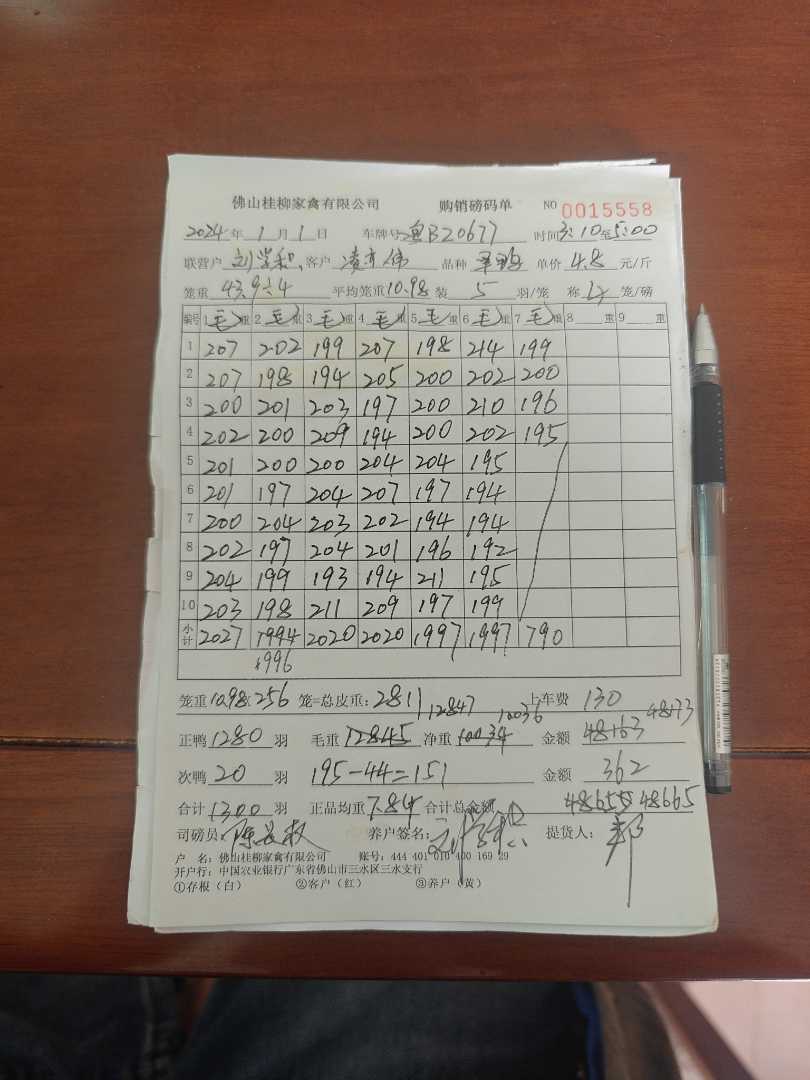 佛山桂柳家禽有限公司 购销磅码单 NO 0015558
2024年 1月 1日 车牌号 B20677 时间3:10至5:00
联营户 刘学和 客户 凌 伟 品种 单价 4.8 元/斤
笼重 43.9÷4 平均笼重10.98 装 5 羽/笼 称 4 笼/磅
编号 1毛重 2毛重 3毛重 4毛重 5毛重 6毛重 7毛重 8 重 9 重
1 207 202 199 207 198 214 199
2 207 198 194 205 200 202 200
3 200 201 203 197 200 210 196
4 202 200 209 194 200 202 195
5 201 200 200 204 204 195
6 201 197 204 207 197 194
7 200 204 203 202 194 194
8 202 197 204 201 196 192
9 204 199 193 194 211 195
10 203 198 211 209 197 199
小计 2027 1994 2020 2020 1997 1997 790
1996
笼重10.98× 256 笼=总皮重: 2811 上车费 130
12847 10036 48173
正鸭 1280 羽 毛重 12845 净重 10034 金额 48163
次鸭 20 羽 195-44=151 金额 362
合计 1300 羽 正品均重 7.84 合计总金额 48655 48665
司磅员: 陈 养户签名: 刘学 提货人: 郭
户 名:佛山桂柳家禽有限公司 账号:444 401 010 400 169 29
开户行:中国农业银行广东省佛山市三水区三水支行
①存根(白) ②客户(红) ③养户(黄)